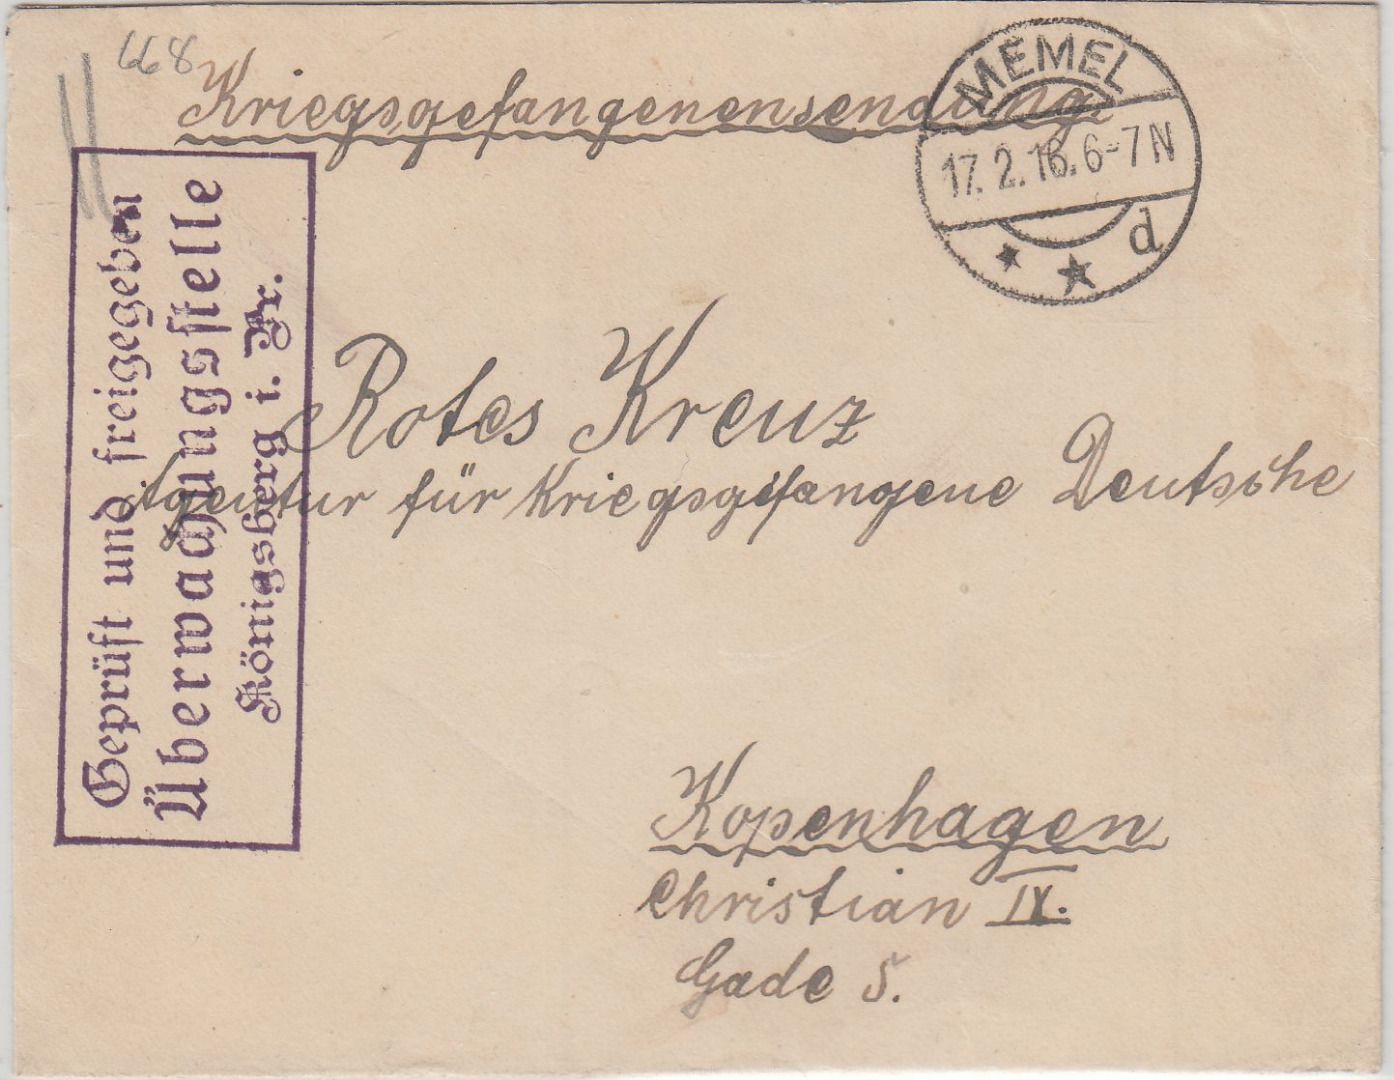 668
Kriegsgefangenensendung
MEMEL
17.2.16.6-7N
d
Geprüft und freigegeben
Überwachungsstelle
Königsberg i. Pr.
Rotes Kreuz
Agentur für Kriegsgefangene Deutsche
Kopenhagen
Christian IX.
Gade 5.